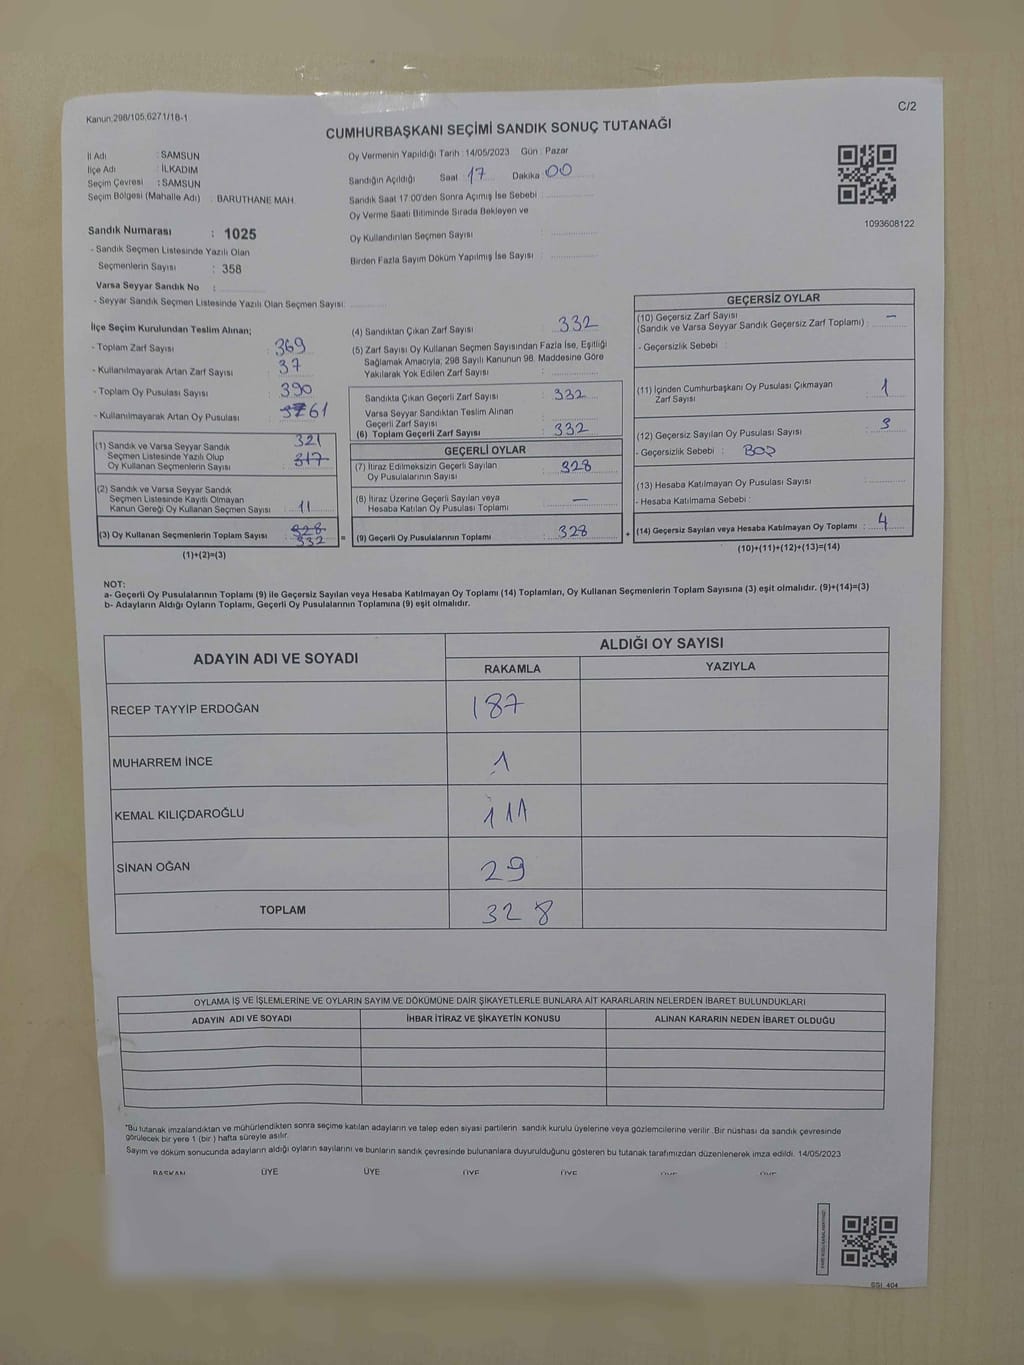 Kanun,298/105,6271/18-1
C/2
CUMHURBAŞKANI SEÇİMİ SANDIK SONUÇ TUTANAĞI
İl Adı : SAMSUN
İlçe Adı : İLKADIM
Seçim Çevresi : SAMSUN
Seçim Bölgesi (Mahalle Adı) : BARUTHANE MAH.
Sandık Numarası : 1025
- Sandık Seçmen Listesinde Yazılı Olan
Seçmenlerin Sayısı : 358
Varsa Seyyar Sandık No :
- Seyyar Sandık Seçmen Listesinde Yazılı Olan Seçmen Sayısı:
Oy Vermenin Yapıldığı Tarih : 14/05/2023 Gün : Pazar
Sandığın Açıldığı Saat 17 Dakika 00
Sandık Saat 17:00'den Sonra Açımış İse Sebebi :
Oy Verme Saati Bitiminde Sırada Bekleyen ve
Oy Kullandırılan Seçmen Sayısı :
Birden Fazla Sayım Döküm Yapılmış İse Sayısı :
1093608122
İlçe Seçim Kurulundan Teslim Alınan;
- Toplam Zarf Sayısı : 369
- Kullanılmayarak Artan Zarf Sayısı : 37
- Toplam Oy Pusulası Sayısı : 390
- Kullanılmayarak Artan Oy Pusulası : 61
(1) Sandık ve Varsa Seyyar Sandık
Seçmen Listesinde Yazılı Olup
Oy Kullanan Seçmenlerin Sayısı : 321
317
(2) Sandık ve Varsa Seyyar Sandık
Seçmen Listesinde Kayıtlı Olmayan
Kanun Gereği Oy Kullanan Seçmen Sayısı : 11
(3) Oy Kullanan Seçmenlerin Toplam Sayısı : 328
332
=
(1)+(2)=(3)
(4) Sandıktan Çıkan Zarf Sayısı : 332
(5) Zarf Sayısı Oy Kullanan Seçmen Sayısından Fazla İse, Eşitliği
Sağlamak Amacıyla, 298 Sayılı Kanunun 98. Maddesine Göre
Yakılarak Yok Edilen Zarf Sayısı :
Sandıkta Çıkan Geçerli Zarf Sayısı : 332
Varsa Seyyar Sandıktan Teslim Alınan
Geçerli Zarf Sayısı :
(6) Toplam Geçerli Zarf Sayısı : 332
GEÇERLİ OYLAR
(7) İtiraz Edilmeksizin Geçerli Sayılan
Oy Pusulalarının Sayısı : 328
(8) İtiraz Üzerine Geçerli Sayılan veya
Hesaba Katılan Oy Pusulası Toplamı : —
(9) Geçerli Oy Pusulalarının Toplamı : 328
+
GEÇERSİZ OYLAR
(10) Geçersiz Zarf Sayısı
(Sandık ve Varsa Seyyar Sandık Geçersiz Zarf Toplamı) : —
- Geçersizlik Sebebi :
(11) İçinden Cumhurbaşkanı Oy Pusulası Çıkmayan
Zarf Sayısı : 1
(12) Geçersiz Sayılan Oy Pusulası Sayısı : 3
- Geçersizlik Sebebi : BOŞ
(13) Hesaba Katılmayan Oy Pusulası Sayısı :
- Hesaba Katılmama Sebebi :
(14) Geçersiz Sayılan veya Hesaba Katılmayan Oy Toplamı : 4
(10)+(11)+(12)+(13)=(14)
NOT:
a- Geçerli Oy Pusulalarının Toplamı (9) ile Geçersiz Sayılan veya Hesaba Katılmayan Oy Toplamı (14) Toplamları, Oy Kullanan Seçmenlerin Toplam Sayısına (3) eşit olmalıdır. (9)+(14)=(3)
b- Adayların Aldığı Oyların Toplamı, Geçerli Oy Pusulalarının Toplamına (9) eşit olmalıdır.
ADAYIN ADI VE SOYADI
ALDIĞI OY SAYISI
RAKAMLA YAZIYLA
RECEP TAYYİP ERDOĞAN 187
MUHARREM İNCE 1
KEMAL KILIÇDAROĞLU 111
SİNAN OĞAN 29
TOPLAM 328
OYLAMA İŞ VE İŞLEMLERİNE VE OYLARIN SAYIM VE DÖKÜMÜNE DAİR ŞİKAYETLERLE BUNLARA AİT KARARLARIN NELERDEN İBARET BULUNDUKLARI
ADAYIN ADI VE SOYADI İHBAR İTİRAZ VE ŞİKAYETİN KONUSU ALINAN KARARIN NEDEN İBARET OLDUĞU
*Bu tutanak imzalandıktan ve mühürlendikten sonra seçime katılan adayların ve talep eden siyasi partilerin sandık kurulu üyelerine veya gözlemcilerine verilir. Bir nüshası da sandık çevresinde
görülecek bir yere 1 (bir ) hafta süreyle asılır.
Sayım ve döküm sonucunda adayların aldığı oyların sayılarını ve bunların sandık çevresinde bulunanlara duyurulduğunu gösteren bu tutanak tarafımızdan düzenlenerek imza edildi. 14/05/2023
BAŞKAN ÜYE ÜYE ÜYE ÜYE
SSI_404